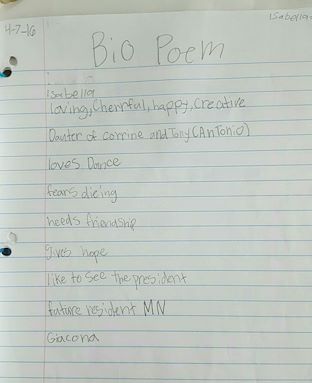 Isabella
4-7-16
Bio Poem
Isabella
loving, Cherrful, happy, Creative
Dauter of corrine and Tony (Antonio)
loves Dance
fears dieing
needs friendship
gives hope
like to see the president
future resident MN
Giacona